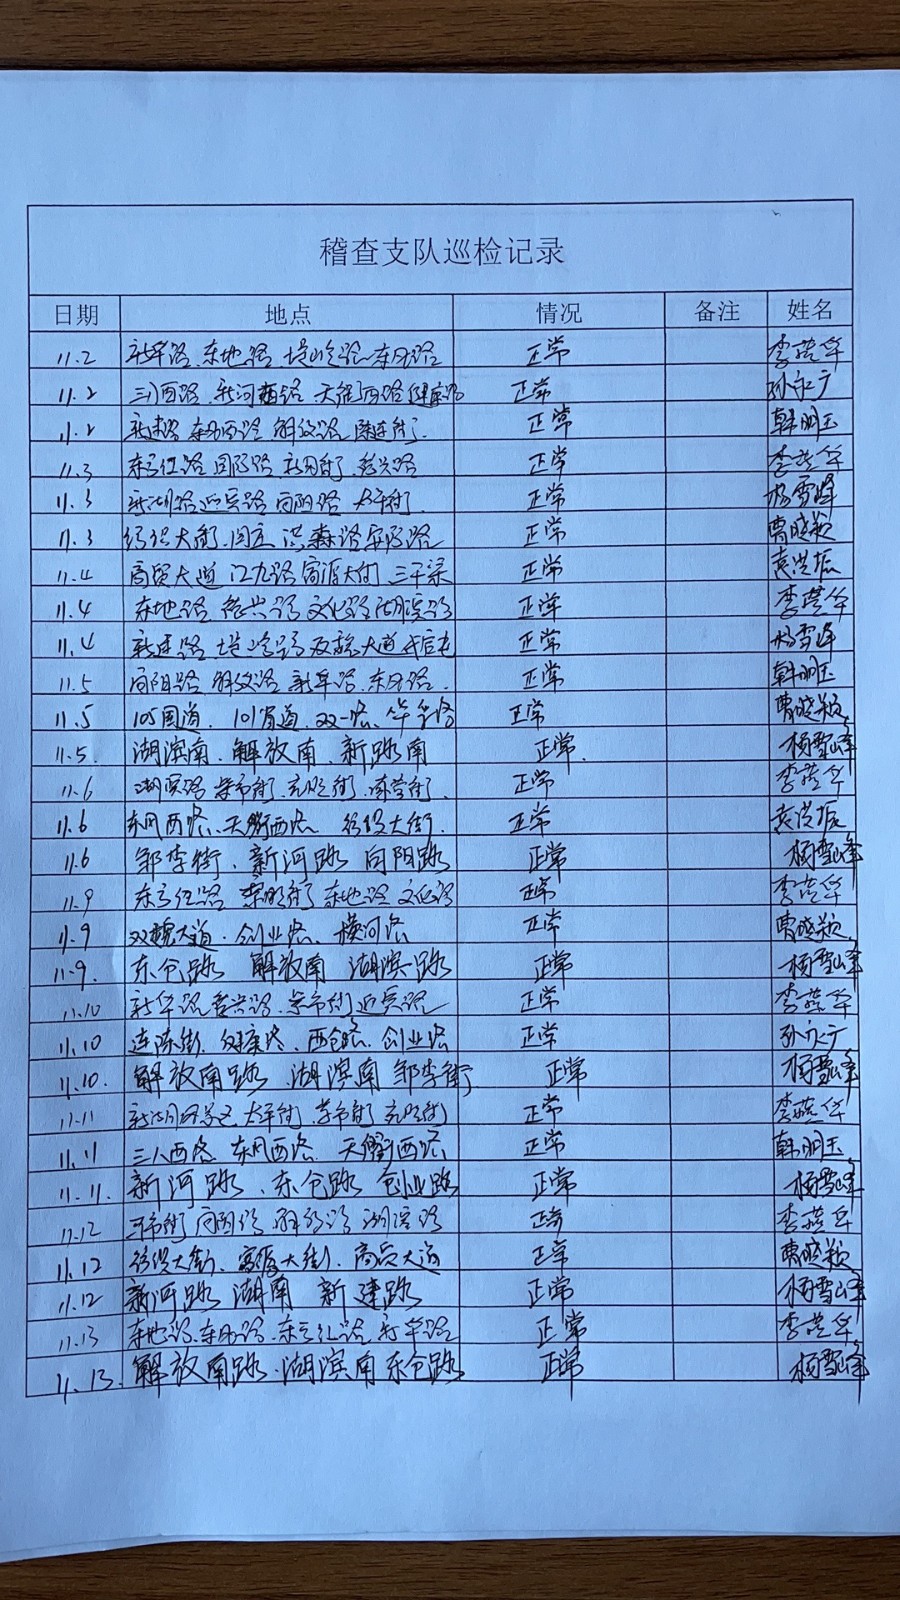 稽查支队巡检记录
日期 地点 情况 备注 姓名
11.2 新华路、东地路、堤 路、东风路 正常 李燕华
11.2 三八西路、新河西路 天衢西路 健康路 正常 孙永广
11.2 新建路 东风西路 解放路 陈连街. 正常 韩明玉
11.3 东方红路 国防路 新 街 德兴路 正常 李燕华
11.3 新湖路 迎宾路 向阳路 太平街. 正常 杨雪峰
11.3 纺织大街. 路 正常 曹晓颖
11.4 商贸大道 江九路 富源大街 三干渠 正常 袁洪振
11.4 东地路 德兴路 文化路 湖滨路 正常 李燕华
11.4 新建路 堤 路 双魏大道 正常 杨雪峰
11.5 向阳路 解放路 新华路、东风路. 正常 韩明玉
11.5 105国道、101省道、双一路、华 路 正常 曹晓颖
11.5. 湖滨南.解放南、新路南 正常. 杨雪峰
11.6 湖滨路 米市街、 街、 街. 正常 李燕华
11.6 东风西路、天衢西路 纺织大街. 正常 袁洪振
11.6 邹李街、新河路 向阳路 正常 杨雪峰
11.9 东方红路 街 东地路 文化路 正常 李燕华
11.9 双魏大道.创业路、横河路 正常 曹晓颖
11.9. 东仓路 解放南 湖滨路 正常 杨雪峰
11.10 新华路 德兴路、米市街 迎宾路 正常 李燕华
11.10 连陈街、健康路、西仓路、创业路 正常 孙永广
11.10. 解放南路、湖滨南 邹李街 正常 杨雪峰
11.11 新湖 太平街 米市街 街 正常 李燕华
11.11 三八西路 东风西路 天衢西路 正常 韩明玉
11.11. 新河路、东仓路 创业路 正常 杨雪峰
11.12 米市街 向阳路 解放路 湖滨路 正常 李燕华
11.12 纺织大街、富源大街、商贸大道 正常 曹晓颖
11.12 新河路 湖南 新建路 正常 杨雪峰
11.13 东地路、东风路、东方红路 新华路 正常 李燕华
11.13. 解放南路.湖滨南 东仓路 正常 杨雪峰